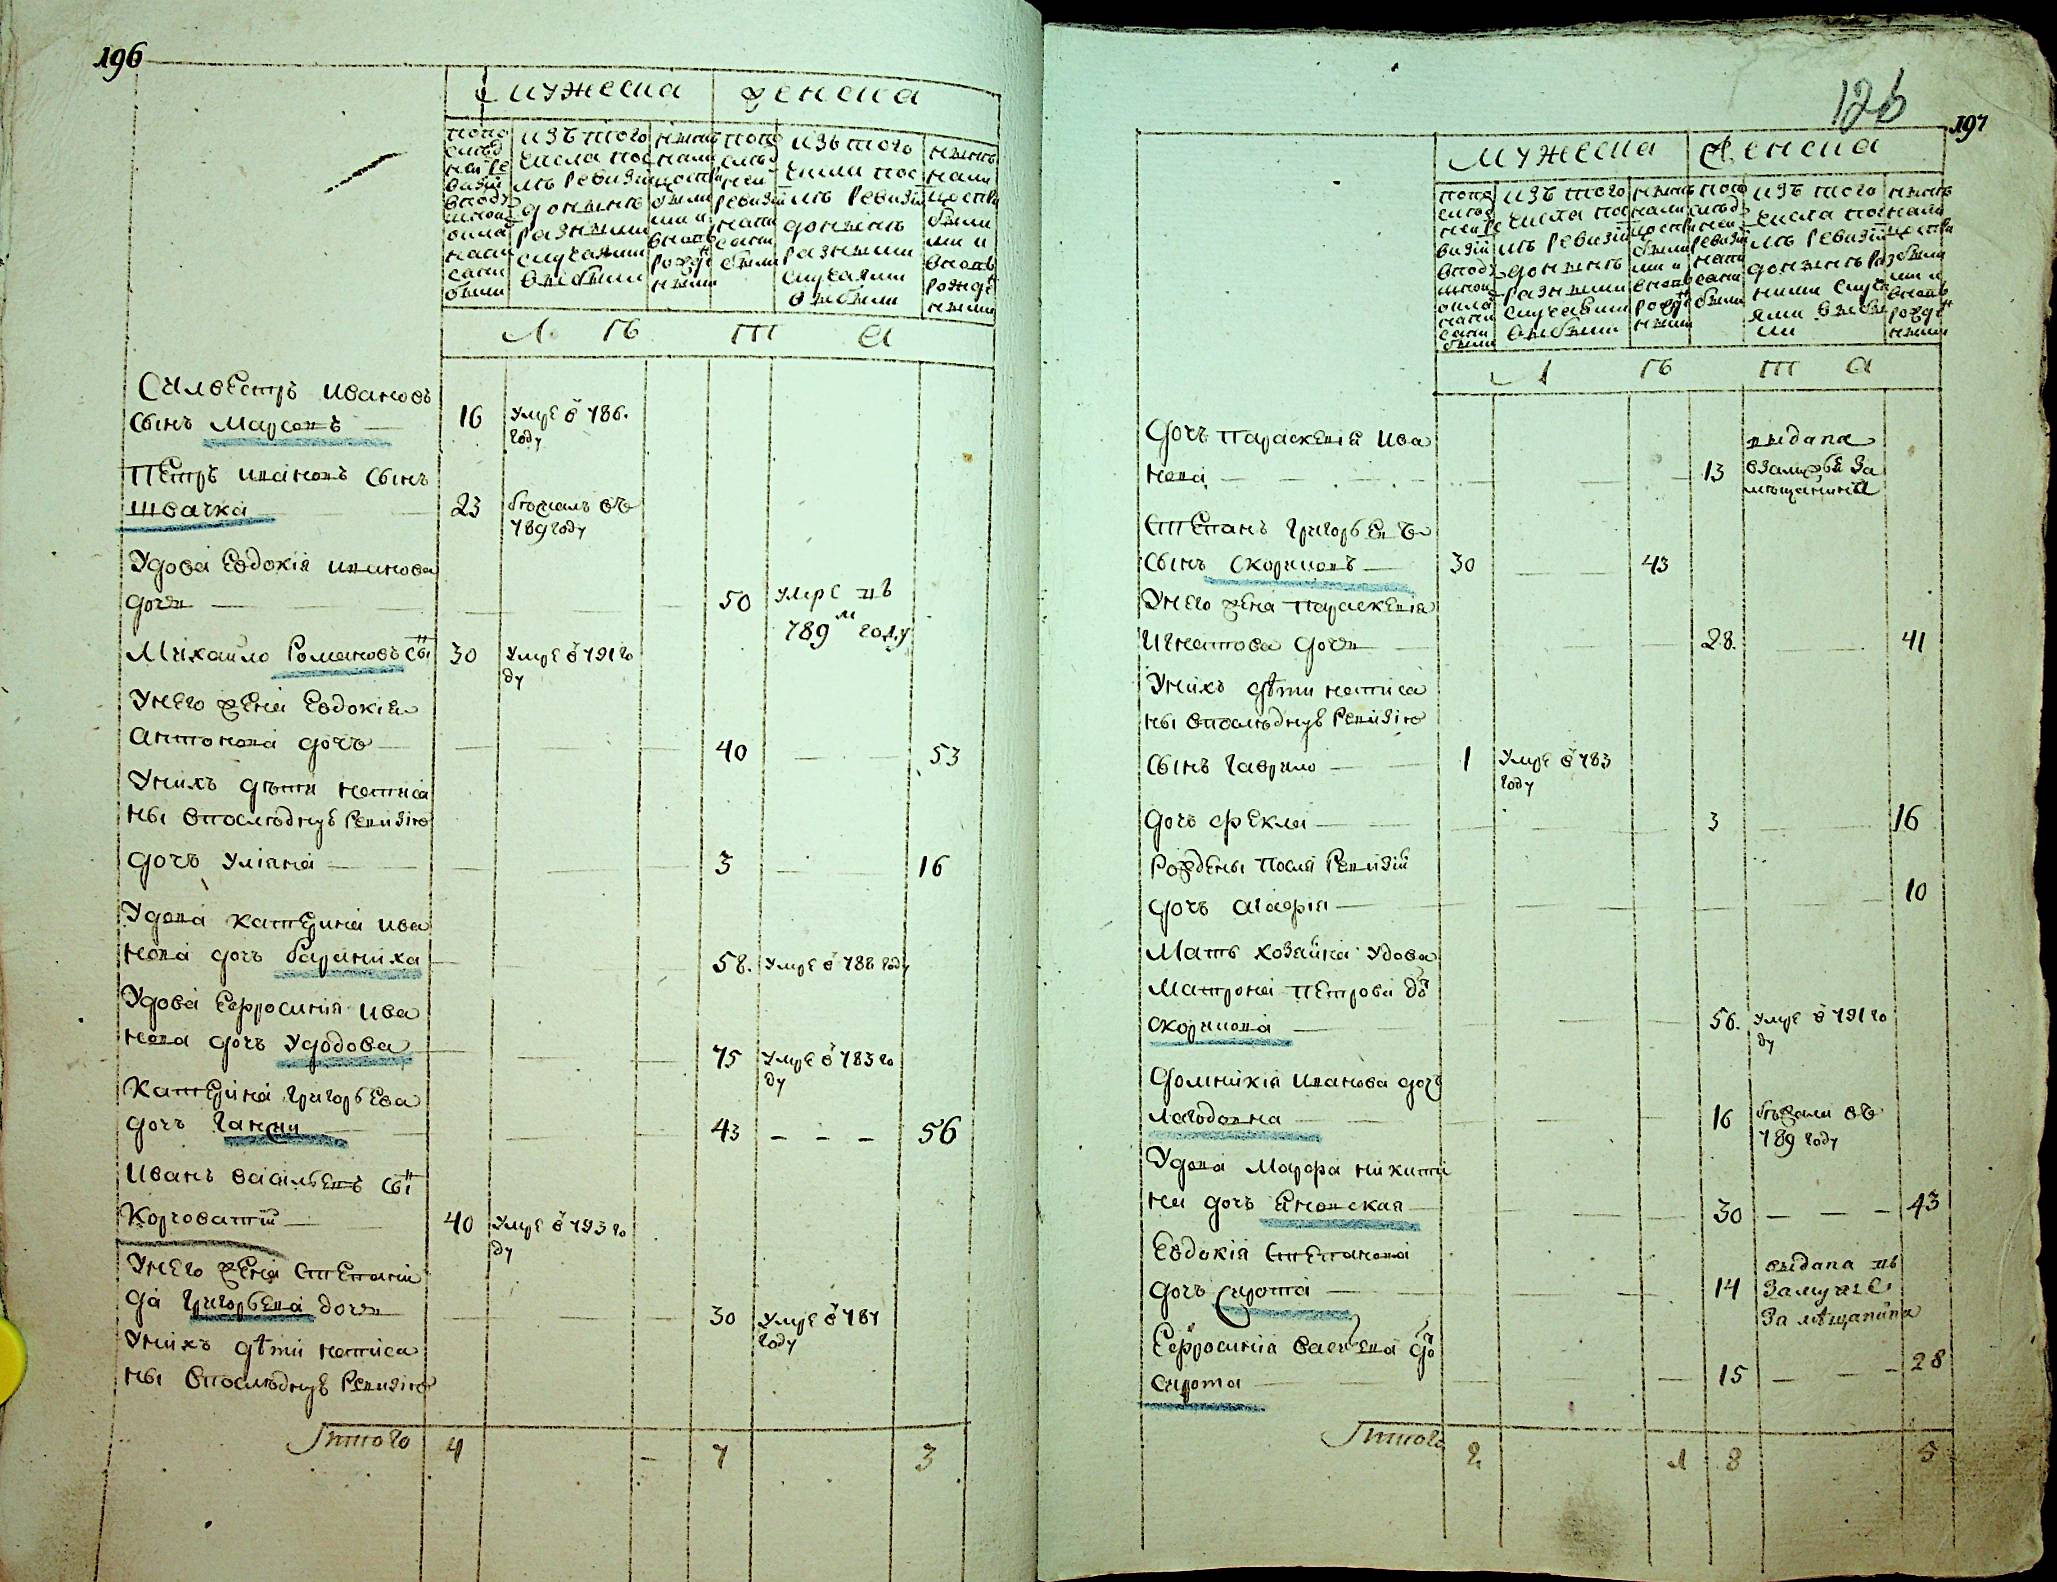 196
мужеска женска
попо
слѣд
ней ре
визіи
в под
ушном
окла
напи
саны
были
изъ того
числа пос
лѣ ревизіи
до нынѣ
разными
случаями
выбыли
нынѣ
нали
цо
были
ми и
вновь
рожде
ными
попо
слѣд
ней
ревизіи
напи
саны
были
изъ того
числа пос
лѣ ревизіи
до нынѣ
разными
случаями
выбыли
нынѣ
нали
были
ми и
вновь
рожде
ными
л ѣ т а
Силвестръ Ивановъ
сынъ 16 умре в 786.
году
Петръ Ивановъ сынъ
Швачка 23 бѣжалъ въ
789 году
Удова Евдокія Иванова
дочь 50 умре въ
789 м году
Михайло Романовъ сы н 30 умре в 791 го
ду
У него жена Евдокія
Антонова дочь 40 53
У нихъ дѣти написа
ны в послѣднуѣ ревизію
дочь Уліяна 3 16
Удова Катерина Ива
нова дочь Бараниха 58. умре в 788 году
Удова Евфросинія Ива
нова дочь Удодова 75 умре в 783 го
ду
Катерина Григорьева
дочь 43 56
Иванъ Васильевъ сы н
Корчоватій 40 умре в 793 го
ду
У него жена Степани
да Григорьева дочь 30 умре в 787
году
У нихъ дѣти написа
ны в послѣднуѣ ревизію
Итого 4 - 7 3
126
197
мужеска женска
попо
слѣд
ней ре
визіи
в под
ушном
окла
напи
саны
были
изъ того
числа пос
лѣ ревизіи
до нынѣ
разными
случаями
выбыли
нынѣ
нали
были
ми и
вновь
рожде
ными
попо
слѣд
ней
ревизіи
напи
саны
были
изъ того
числа пос
лѣ ревизіи
до нынѣ раз
ными случа
ями выбы
ли
нынѣ
нали
были
ми и
вновь
рожде
ными
л ѣ т а
дочь Параскевія Ива
нова 13 выдана
в замужъе за
мѣщанина
Степанъ Григорьевъ
сынъ Скориковъ 30 43
У него жена Параскевія
Игнатова дочь 28. 41
У нихъ дѣти написа
ны в послѣднуѣ ревизію
сынъ Гаврило 1 умре в 783
году
дочь Фекла 3 16
Рождены послѣ ревизіи
дочь Агафія 10
Мать хозайка удова
Матрона Петрова до
Скорикова 56. умре в 791 го
ду
Домникія Иванова дочь
Лагодовна 16 бѣжала въ
789 году
Удова Марфа Никити
на дочь Еновская 30 43
Евдокія Степанова
дочь сирота 14 выдана въ
замужъе
за мѣщанина
Евфросинія Василева до
сирота 15 28
Итого 2 1 8 5